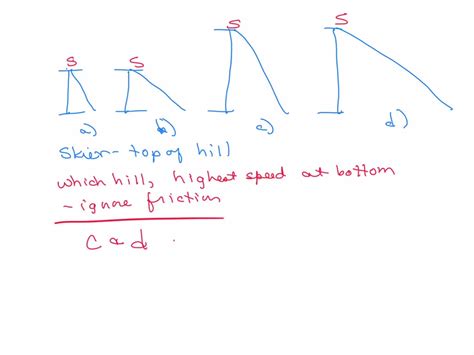 S S S S
a) b) c) d)
Skier - top of hill
which hill, highest speed at bottom
- ignore friction
c & d